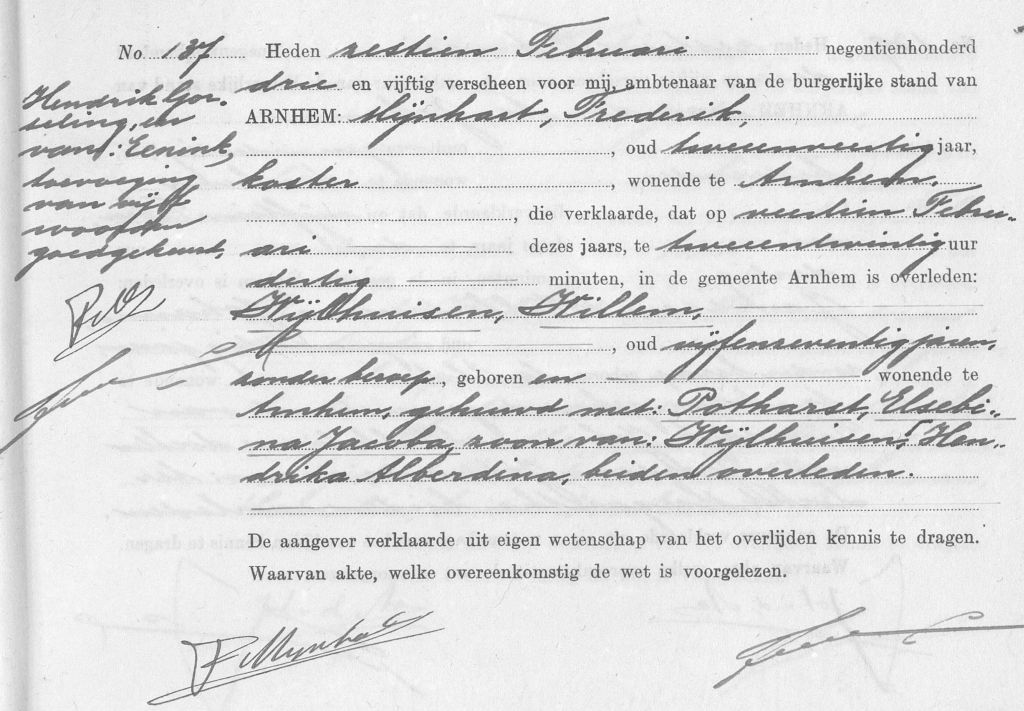 No 137 Heden zestien Februari negentienhonderd
drie en vijftig verscheen voor mij, ambtenaar van de burgerlijke stand van
ARNHEM: Mijnhart, Frederik,
, oud tweeenveertig jaar,
koster , wonende te Arnhem,
, die verklaarde, dat op veertien Febru-
ari dezes jaars, te tweeentwintig uur
dertig minuten, in de gemeente Arnhem is overleden:
Wijlhuisen, Willem,
, oud vijfenzeventig jaren,
zonder beroep, geboren en wonende te
Arnhem, gehuwd met: Potharst, Elsebi-
na Jacoba, zoon van: Wijlhuisen, Hen-
drika Alberdina, beiden overleden.
De aangever verklaarde uit eigen wetenschap van het overlijden kennis te dragen.
Waarvan akte, welke overeenkomstig de wet is voorgelezen.
Hendrik Gor-
seling, en
van: Eenink,
toevoeging
van vijf
woorden
goedgekeurd,
F Mijnhart